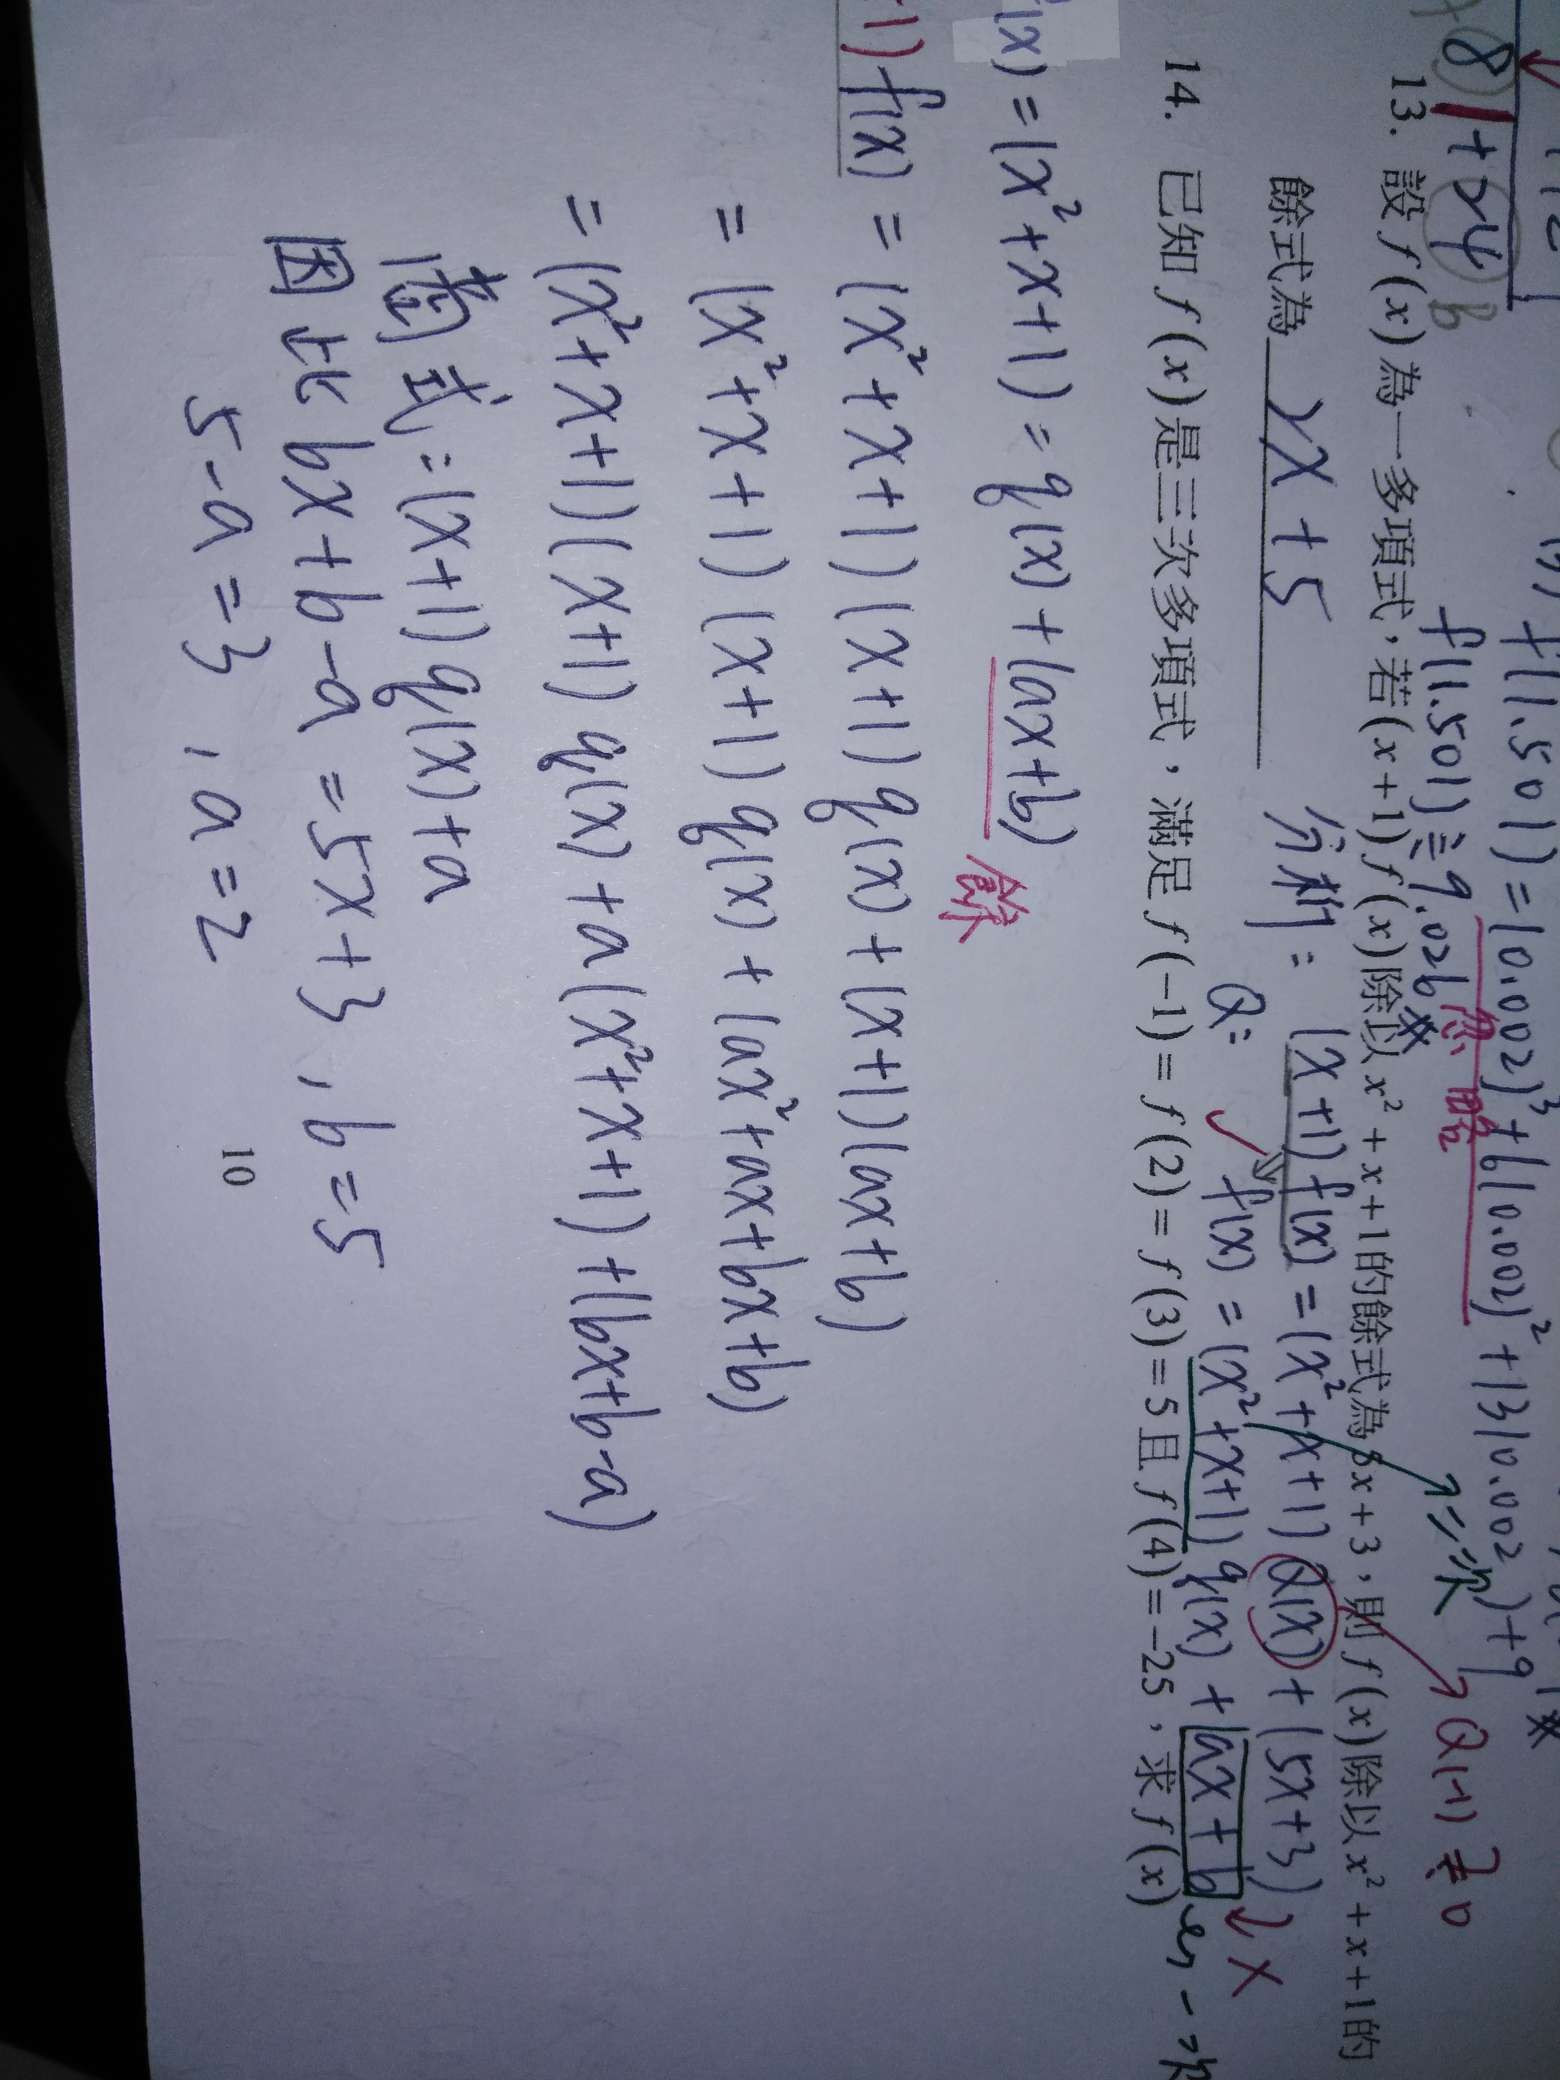 f(1.501) = (0.002)³ + 6(0.002)² + 13(0.002) + 9
8 1 + 24
b
f(1.501) ≒ 9.026 ※
忽略
13. 設 f(x) 為一多項式，若 (x+1) f(x) 除以 x² + x + 1 的餘式為 5x + 3，則 f(x) 除以 x² + x + 1 的
二次
Q(-1) ≠ 0
餘式為 2x + 5
分析： (x+1) f(x) = (x²+x+1) Q(x) + (5x+3)
Q: f(x) = (x²+x+1) q(x) + (ax+b)
14. 已知 f(x) 是三次多項式，滿足 f(-1) = f(2) = f(3) = 5 且 f(4) = -25，求 f(x)
f(x) = (x²+x+1) = q(x) + (ax+b)
餘
+1) f(x) = (x²+x+1)(x+1) q(x) + (x+1)(ax+b)
= (x²+x+1)(x+1) q(x) + (ax²+ax+bx+b)
= (x²+x+1)(x+1) q(x) + a(x²+x+1) + (bx+b-a)
商式：(x+1) q(x) + a
因此 bx+b-a = 5x+3, b=5
5-a=3, a=2
10